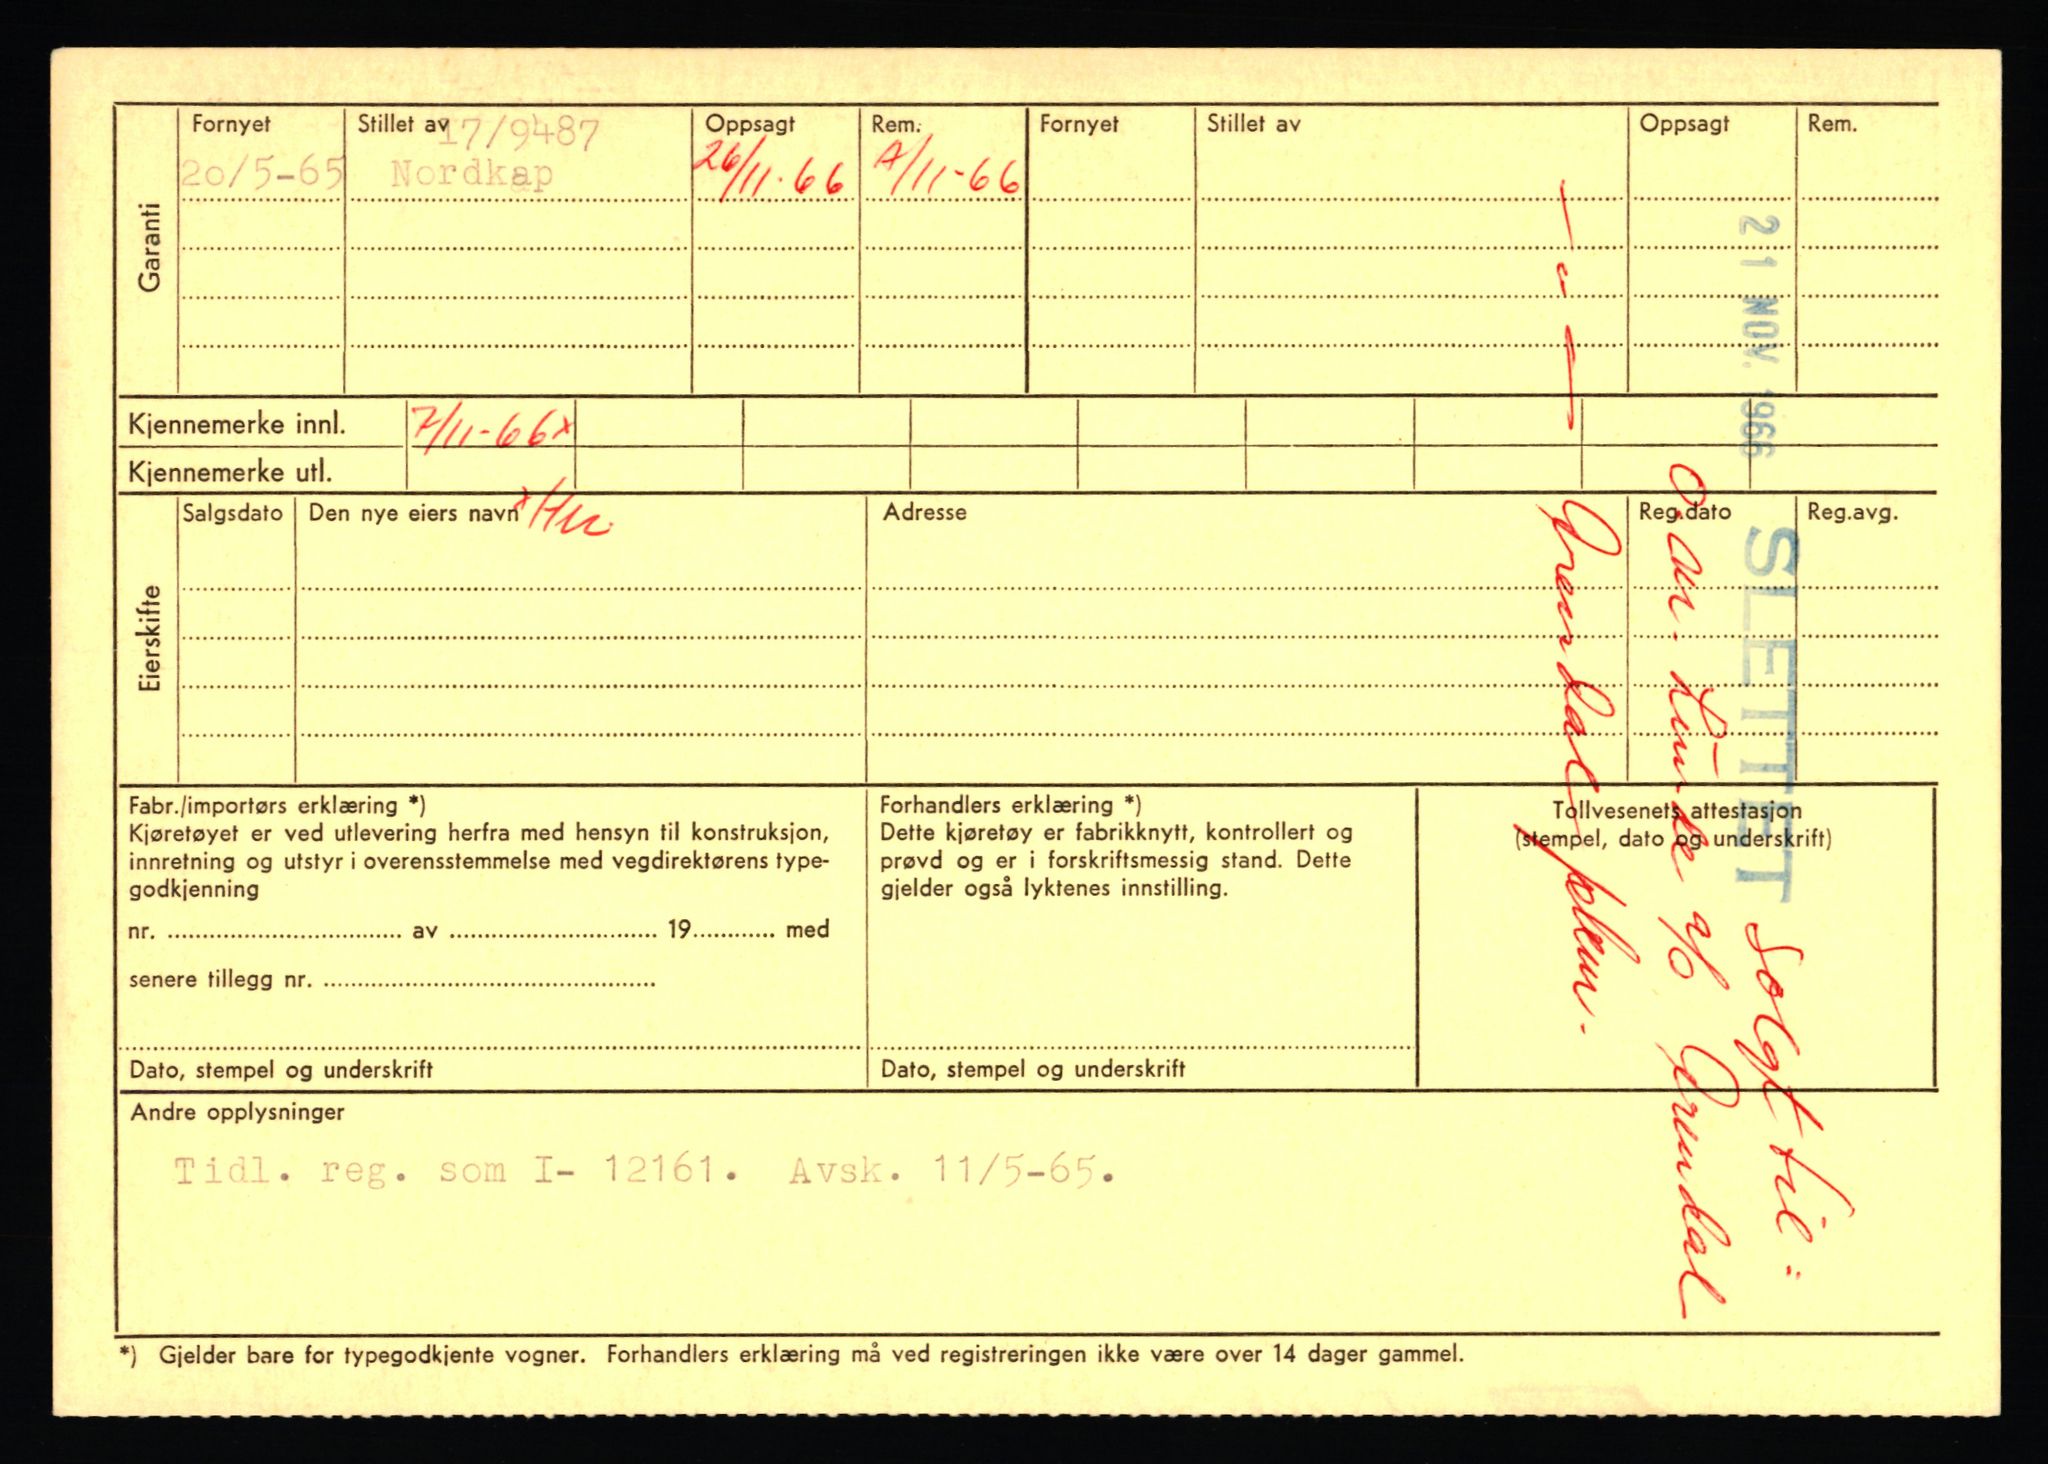 Garanti
Fornyet Stillet av Oppsagt Rem. Fornyet Stillet av Oppsagt Rem.
17/9487
20/5-65 Nordkap 26/11-66 /11-66
Kjennemerke innl. 7/11-66x
Kjennemerke utl.
Eierskifte
Salgsdato Den nye eiers navn Adresse Reg.dato Reg.avg.
Fabr./importørs erklæring *)
Kjøretøyet er ved utlevering herfra med hensyn til konstruksjon,
innretning og utstyr i overensstemmelse med vegdirektørens type-
godkjenning
nr. .......... av .......... 19.......... med
senere tillegg nr. ..........
Dato, stempel og underskrift
Forhandlers erklæring *)
Dette kjøretøy er fabrikknytt, kontrollert og
prøvd og er i forskriftsmessig stand. Dette
gjelder også lyktenes innstilling.
Dato, stempel og underskrift
Tollvesenets attestasjon
(stempel, dato og underskrift)
Andre opplysninger
Tidl. reg. som I- 12161. Avsk. 11/5-65.
*) Gjelder bare for typegodkjente vogner. Forhandlers erklæring må ved registreringen ikke være over 14 dager gammel.
21 NOV. 1966
SLETTET
Solgt til: